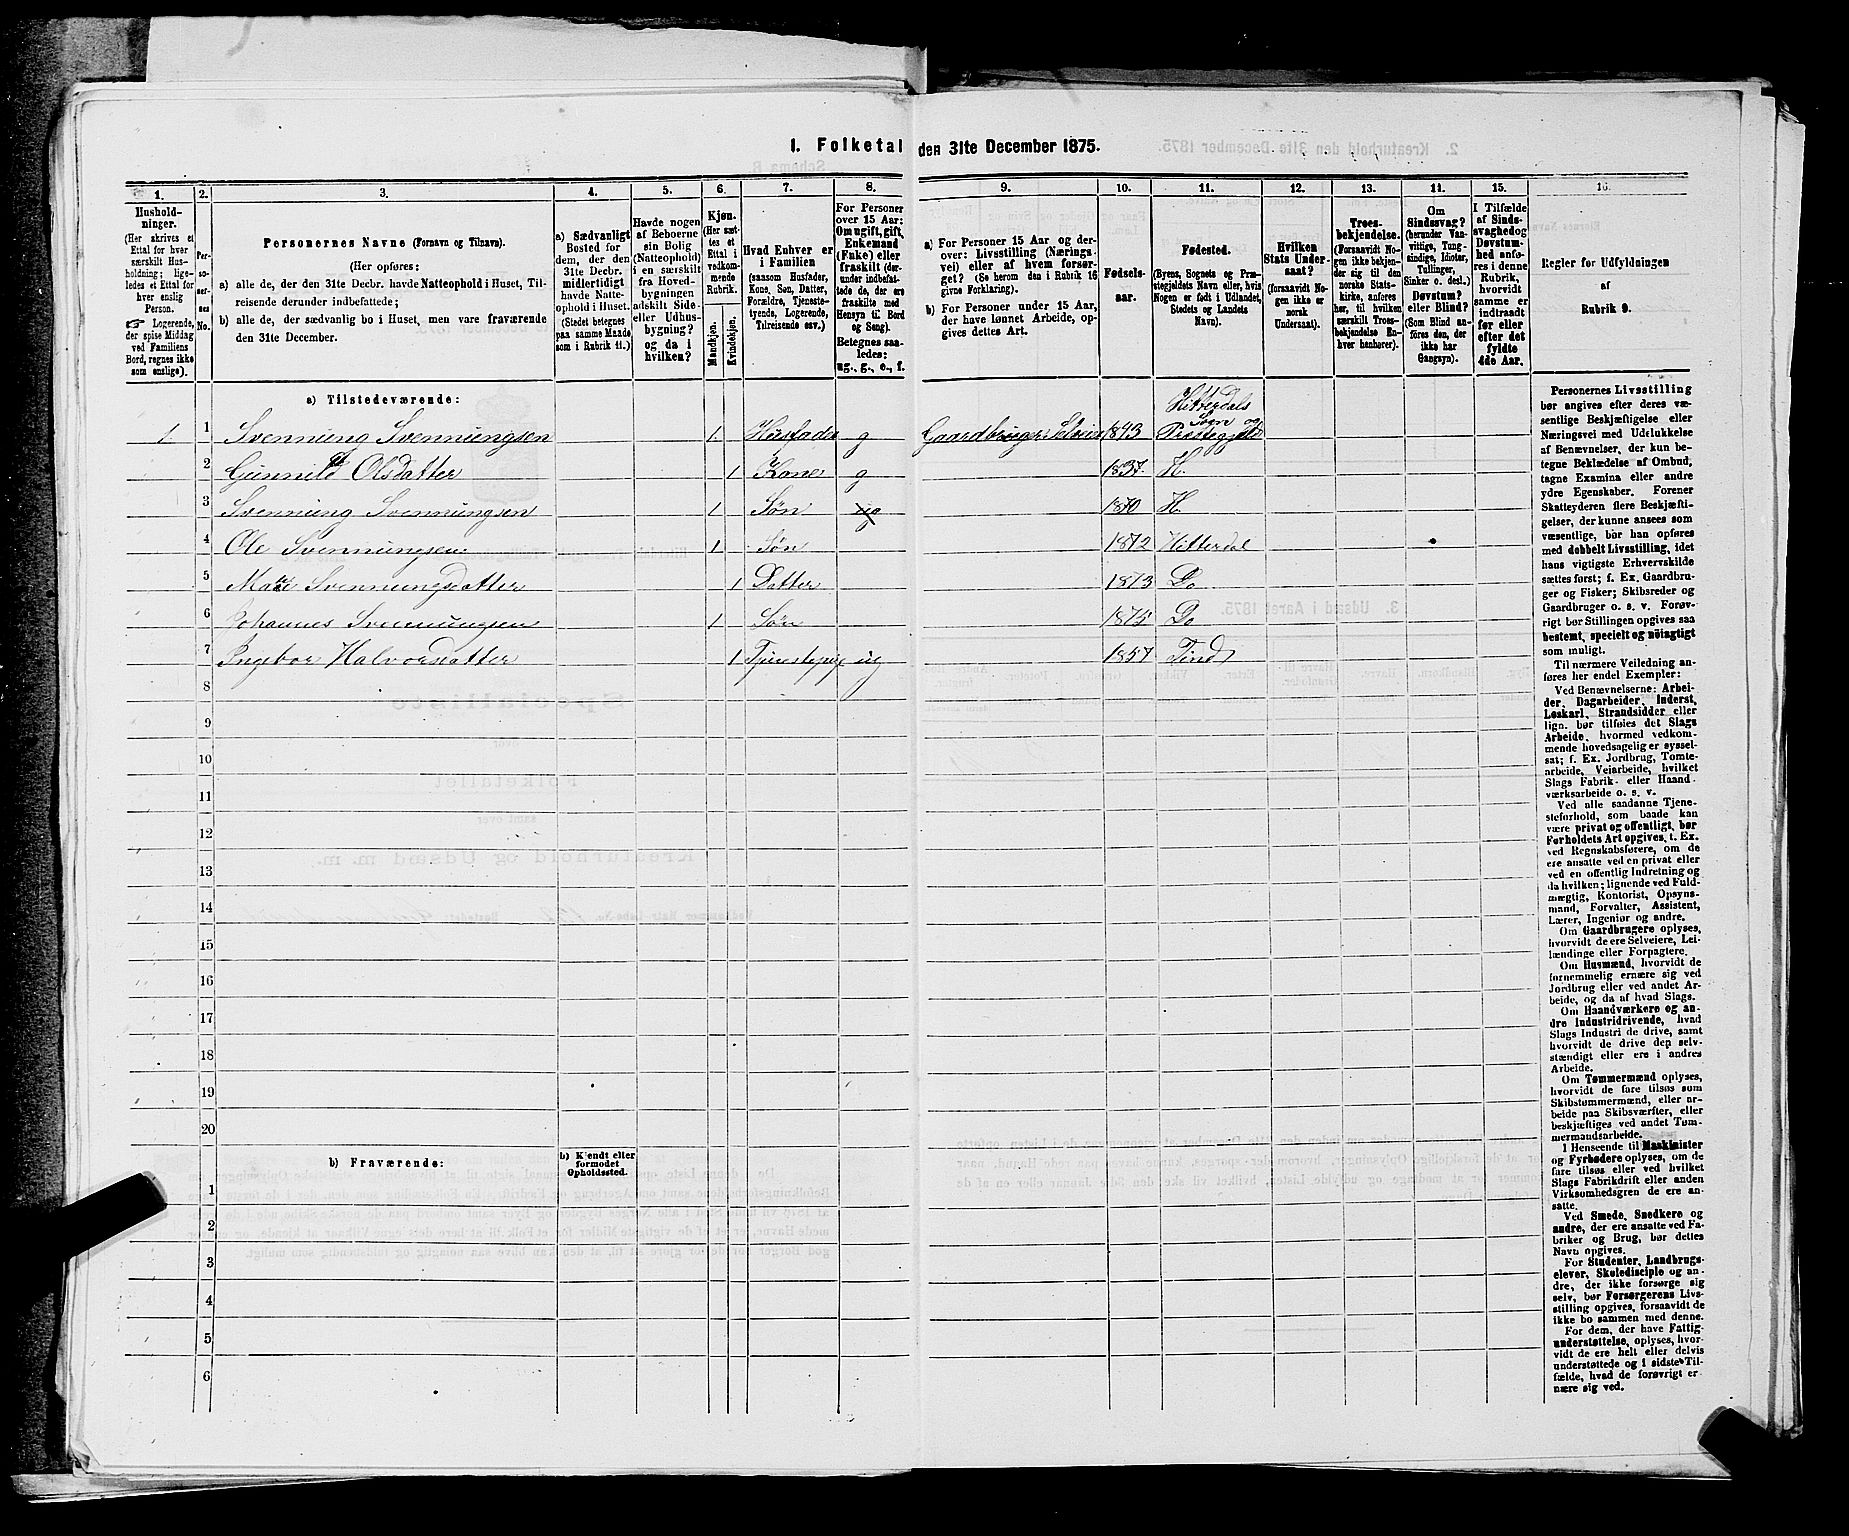 I. Folketal den 31te December 1875.
1. 2. 3. 4. 5. 6. 7. 8. 9. 10. 11. 12. 13. 14. 15. 16.
Husholdninger.
(Her skrives et Ettal for hver særskilt Husholdning; ligeledes et Ettal for hver enslig Person.
☞ Logerende, der spise Middag ved Familiens Bord, regnes ikke som enslige).
Personernes No.
Personernes Navne (Fornavn og Tilnavn).
(Her opføres:
a) alle de, der den 31te Decbr. havde Natteophold i Huset, Tilreisende derunder indbefattede;
b) alle de, der sædvanlig bo i Huset, men vare fraværende den 31te December.
a) Sædvanligt Bosted for dem, der den 31te Decbr. midlertidigt havde Natteophold i Huset.
(Stedet betegnes paa samme Maade som i Rubrik 11.)
Havde nogen af Beboerne sin Bolig (Natteophold) i en særskilt fra Hovedbygningen adskilt Side- eller Udhusbygning? og da i hvilken?
Kjøn.
(Her sættes et Ettal i vedkommende Rubrik.
Mandkjøn. Kvindekjøn.
Hvad Enhver er i Familien
(saasom Husfader, Kone, Søn, Datter, Forældre, Tjenestetyende, Logerende, Tilreisende osv.)
For Personer over 15 Aar: Om ugift, gift, Enkemand (Enke) eller fraskilt (derunder indbefattede de, der ere fraskilte med Hensyn til Bord og Seng).
Betegnes saaledes: ug., g., e., f.
a) For Personer 15 Aar og derover: Livsstilling (Næringsvei) eller af hvem forsørget? (Se herom den i Rubrik 16 givne Forklaring).
b) For Personer under 15 Aar, der have lønnet Arbeide, opgives dettes Art.
Fødselsaar.
Fødested.
(Byens, Sognets og Præstegjeldets Navn eller, hvis Nogen er født i Udlandet, Stedets og Landets Navn).
Hvilken Stats Undersaat?
(forsaavidt Nogen ikke er norsk Undersaat).
Troesbekjendelse.
(Forsaavidt Nogen ikke bekjender sig til den norske Statskirke, anføres her, til hvilken særskilt Troesbekjendelse Enhver henhører).
Om Sindssvag?
(herunder Vanvittige, Tungsindige, Idioter, Tullinger, Sinker o. desl.)
Døvstum? eller Blind?
(Som Blind anføres den, der ikke har Gangsyn).
I Tilfælde af Sindssvaghed og Døvstumhed anføres i denne Rubrik, hvorvidt samme er indtraadt før eller efter det fyldte 4de Aar.
Regler for Udfyldningen af Rubrik 9.
a) Tilstedeværende:
1 1 Svennung Svennungsen 1. Husfader g Gaardbruger Selveier 1843 Hitterdals Sogn og Præstegjeld
2 Gunnild Olsdatter 1 Kone g 1837. H.
3 Svennung Svennungsen 1 Søn ug 1870 H.
4 Ole Svennungsen 1 Søn 1872 Hitterdal
5 Mate Svennungsdatter 1 Datter 1873 Do
6 Johannes Svennungsen 1 Søn 1875 Do
7 Ingebor Halvorsdatter 1 Tjenestepige ug 1857 Tind
8
9
10
11
12
13
14
15
16
17
18
19
20
b) Fraværende: b) Kjendt eller formodet Opholdssted.
1
2
3
4
5
6
Personernes Livsstilling
bør angives efter deres væsentlige Beskjæftigelse eller
Næringsvei med Udelukkelse
af Benævnelser, der kun betegne Beklædelse af Ombud,
tagne Examina eller andre
ydre Egenskaber. Forener
Skatteyderen flere Beskjæftigelser, der kunne ansees som
væsentlige, bør han opføres
med dobbelt Livsstilling, idet
hans vigtigste Erhvervskilde
sættes først; f. Ex. Gaardbruger og Fisker; Skibsreder og
Gaardbruger o. s. v. Forøvrigt bør Stillingen opgives saa
bestemt, specielt og nöiagtigt
som muligt.
Til nærmere Veiledning anføres her endel Exempler:
Ved Benævnelserne: Arbeider, Dagarbeider, Inderst,
Løskarl, Strandsidder eller
lign. bør tilføies det Slags
Arbeide, hvormed vedkommende hovedsagelig er sysselsat; f. Ex. Jordbrug, Tomtearbeide, Veiarbeide, hvilket
Slags Fabrik- eller Haandværksarbeide o. s. v.
Ved alle saadanne Tjenesteforhold, som baade kan
være privat og offentligt, bør
Forholdets Art opgives, t. Ex.
ved Regnskabsførere, om de
ere ansatte ved en privat eller
ved en offentlig Indretning og
da hvilken; lignende ved Fuldmægtig, Kontorist, Opsynsmand, Forvalter, Assistent,
Lærer, Ingeniør og andre.
Om Gaardbrugere oplyses,
hvorvidt de ere Selveiere, Leilændinge eller Forpagtere.
Om Husmænd, hvorvidt de
fornemmelig ernære sig ved
Jordbrug eller ved andet Arbeide, og da af hvad Slags.
Om Haandværkere og andre Industridrivende, hvad
Slags Industri de drive, samt
hvorvidt de drive den selvstændigt eller ere i andres
Arbeide.
Om Tømmermænd oplyses,
hvorvidt de fare tilsøs som
Skibstømmermænd, eller arbeide paa Skibsværfter, eller
beskjæftiges ved andet Tømmermandsarbeide.
I Henseende til Maskinister
og Fyrbødere oplyses, om de
fare tilsøs eller ved hvilket
Slags Fabrikdrift eller anden
Virksomhedsgren de ere ansatte.
Ved Smede, Snedkere og
andre, der ere ansatte ved Fabriker og Brug, bør dettes
Navn opgives.
For Studenter, Landbrugselever, Skoledisciple og andre, der ikke forsørge sig
selv, bør Forsørgerens Livsstilling opgives, forsaavidt de
ikke bo sammen med denne.
For dem, der have Fattigunderstøttelse, oplyses, hvorvidt de ere helt eller delvis
understøttede og i sidste Tilfælde, hvad de forøvrigt ernære sig ved.